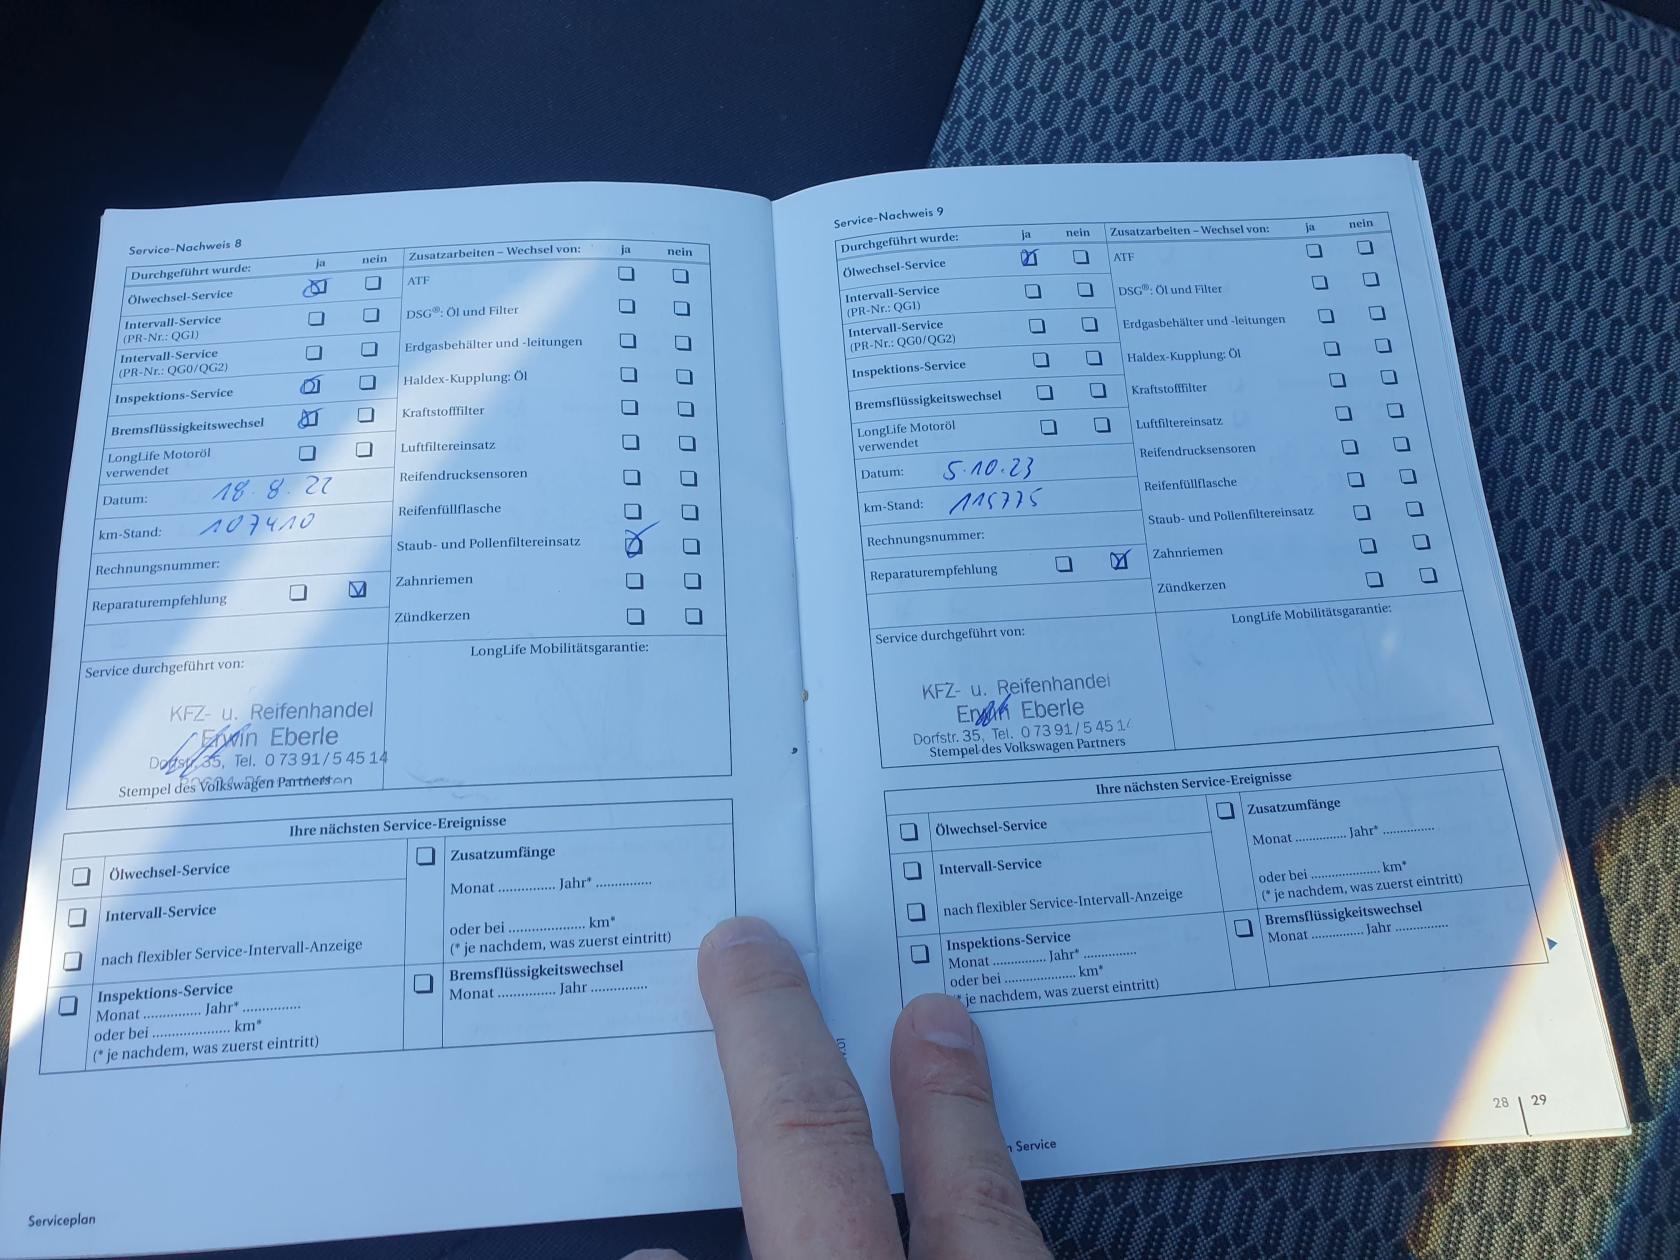 Service-Nachweis 8
Durchgeführt wurde: ja nein
Ölwechsel-Service
Intervall-Service
(PR-Nr.: QG1)
Intervall-Service
(PR-Nr.: QG0/QG2)
Inspektions-Service
Bremsflüssigkeitswechsel
LongLife Motoröl
verwendet
Datum: 18.8.22
km-Stand: 107410
Rechnungsnummer:
Reparaturempfehlung
Service durchgeführt von:
KFZ- u. Reifenhandel
Erwin Eberle
Dorfstr. 35, Tel. 0 73 91 / 5 45 14
Stempel des Volkswagen Partners
Zusatzarbeiten – Wechsel von: ja nein
ATF
DSG®: Öl und Filter
Erdgasbehälter und -leitungen
Haldex-Kupplung: Öl
Kraftstofffilter
Luftfiltereinsatz
Reifendrucksensoren
Reifenfüllflasche
Staub- und Pollenfiltereinsatz
Zahnriemen
Zündkerzen
LongLife Mobilitätsgarantie:
Ihre nächsten Service-Ereignisse
Ölwechsel-Service
Intervall-Service
nach flexibler Service-Intervall-Anzeige
Inspektions-Service
Monat ............... Jahr* ...............
oder bei .................... km*
(* je nachdem, was zuerst eintritt)
Zusatzumfänge
Monat ............... Jahr* ...............
oder bei .................... km*
(* je nachdem, was zuerst eintritt)
Bremsflüssigkeitswechsel
Monat ............... Jahr ...............
Serviceplan
Service-Nachweis 9
Durchgeführt wurde: ja nein
Ölwechsel-Service
Intervall-Service
(PR-Nr.: QG1)
Intervall-Service
(PR-Nr.: QG0/QG2)
Inspektions-Service
Bremsflüssigkeitswechsel
LongLife Motoröl
verwendet
Datum: 5.10.23
km-Stand: 115775
Rechnungsnummer:
Reparaturempfehlung
Service durchgeführt von:
KFZ- u. Reifenhandel
Erwin Eberle
Dorfstr. 35, Tel. 0 73 91 / 5 45 1
Stempel des Volkswagen Partners
Zusatzarbeiten – Wechsel von: ja nein
ATF
DSG®: Öl und Filter
Erdgasbehälter und -leitungen
Haldex-Kupplung: Öl
Kraftstofffilter
Luftfiltereinsatz
Reifendrucksensoren
Reifenfüllflasche
Staub- und Pollenfiltereinsatz
Zahnriemen
Zündkerzen
LongLife Mobilitätsgarantie:
Ihre nächsten Service-Ereignisse
Ölwechsel-Service
Intervall-Service
nach flexibler Service-Intervall-Anzeige
Inspektions-Service
Monat ............... Jahr* ...............
oder bei .................... km*
je nachdem, was zuerst eintritt)
Zusatzumfänge
Monat ............... Jahr* ...............
oder bei .................... km*
(* je nachdem, was zuerst eintritt)
Bremsflüssigkeitswechsel
Monat ............... Jahr ...............
28 | 29
Service